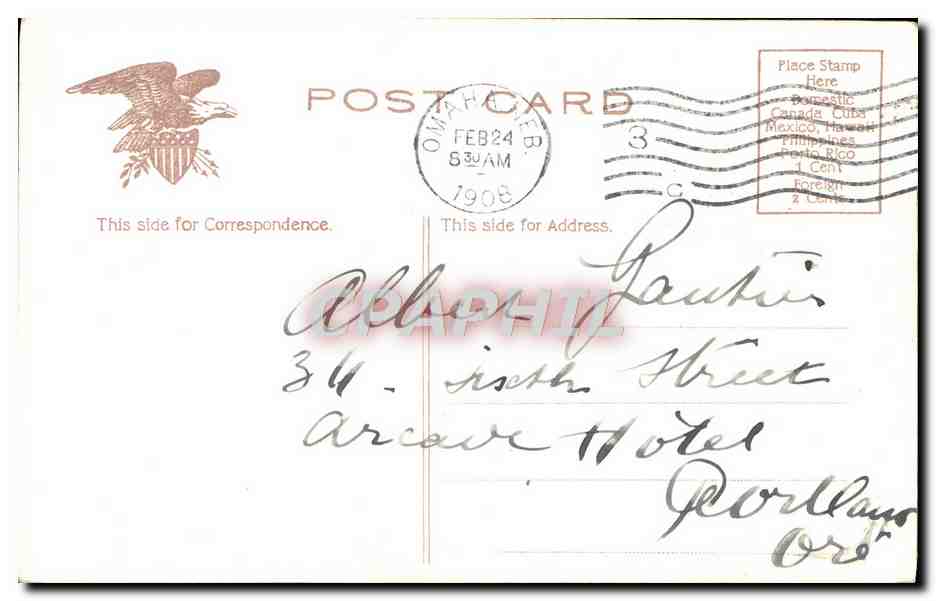 POST CARD
OMAHA, NEB.
FEB 24
8 30 AM
1908
3
C
Place Stamp
Here
Domestic
Canada, Cuba
Mexico, Hawaii
Philippines
Porto Rico
1 Cent
Foreign
2 Cents
This side for Correspondence.
This side for Address.
CPAPHIL
Albert Gautier
34 - sixth Street
Arcade Hotel
Portland
Ore